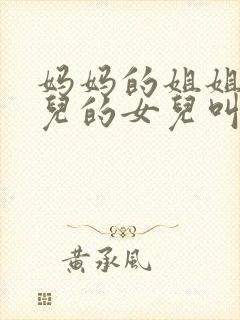 妈妈的姐姐
兒的女兒叫
黃承風